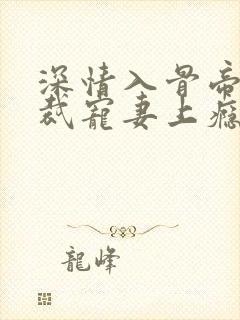 深情入骨帝
裁寵妻上癮
龍峰